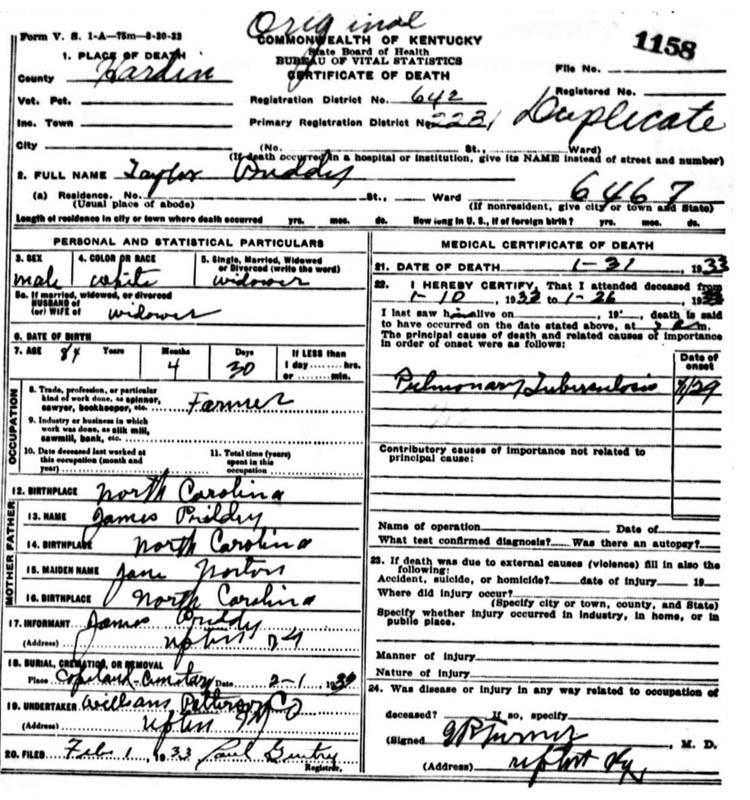 Original
Form V. S. 1-A—75m—8-30-32
COMMONWEALTH OF KENTUCKY
State Board of Health
BUREAU OF VITAL STATISTICS
CERTIFICATE OF DEATH
1158
1. PLACE OF DEATH
County Hardin
File No.
Registered No.
Vot. Pct.
Registration District No. 642
Inc. Town
Primary Registration District No. 2231
Duplicate
City (No. St., Ward)
(If death occurred in a hospital or institution, give its NAME instead of street and number)
2. FULL NAME Taylor Priddy
6467
(a) Residence. No. St., Ward
(Usual place of abode) (If nonresident, give city or town and State)
Length of residence in city or town where death occurred yrs. mos. ds. How long in U. S., if of foreign birth? yrs. mos. ds.
PERSONAL AND STATISTICAL PARTICULARS
3. SEX 4. COLOR OR RACE 5. Single, Married, Widowed or Divorced (write the word)
male white widower
5a. If married, widowed, or divorced
HUSBAND of
(or) WIFE of widower
6. DATE OF BIRTH
7. AGE 84 Years Months 4 Days 30 If LESS than
1 day hrs.
or min.
OCCUPATION
8. Trade, profession, or particular
kind of work done, as spinner,
sawyer, bookkeeper, etc. Farmer
9. Industry or business in which
work was done, as silk mill,
sawmill, bank, etc.
10. Date deceased last worked at
this occupation (month and
year)
11. Total time (years)
spent in this
occupation
12. BIRTHPLACE North Carolina
FATHER
13. NAME James Priddy
14. BIRTHPLACE North Carolina
MOTHER
15. MAIDEN NAME Jane Norton
16. BIRTHPLACE North Carolina
17. INFORMANT James Priddy
(Address) Upton Ky
18. BURIAL, CREMATION, OR REMOVAL
Place Copeland Cemetary Date 2-1, 19
19. UNDERTAKER
(Address) Upton
20. FILED Feb 1, 1933 Paul Gentry
Registrar.
MEDICAL CERTIFICATE OF DEATH
21. DATE OF DEATH 1-31, 1933
22. I HEREBY CERTIFY, That I attended deceased from
1-10, 1933 to 1-26, 19
I last saw him alive on , 19 , death is said
to have occurred on the date stated above, at m.
The principal cause of death and related causes of importance
in order of onset were as follows:
Date of
onset
Pulmonary Tuberculosis 7/29
Contributory causes of importance not related to
principal cause:
Name of operation Date of
What test confirmed diagnosis? Was there an autopsy?
23. If death was due to external causes (violence) fill in also the
following:
Accident, suicide, or homicide? date of injury 19
Where did injury occur?
(Specify city or town, county, and State)
Specify whether injury occurred in industry, in home, or in
public place.
Manner of injury
Nature of injury
24. Was disease or injury in any way related to occupation of
deceased? If so, specify
(Signed Turner, M. D.
(Address) Ky